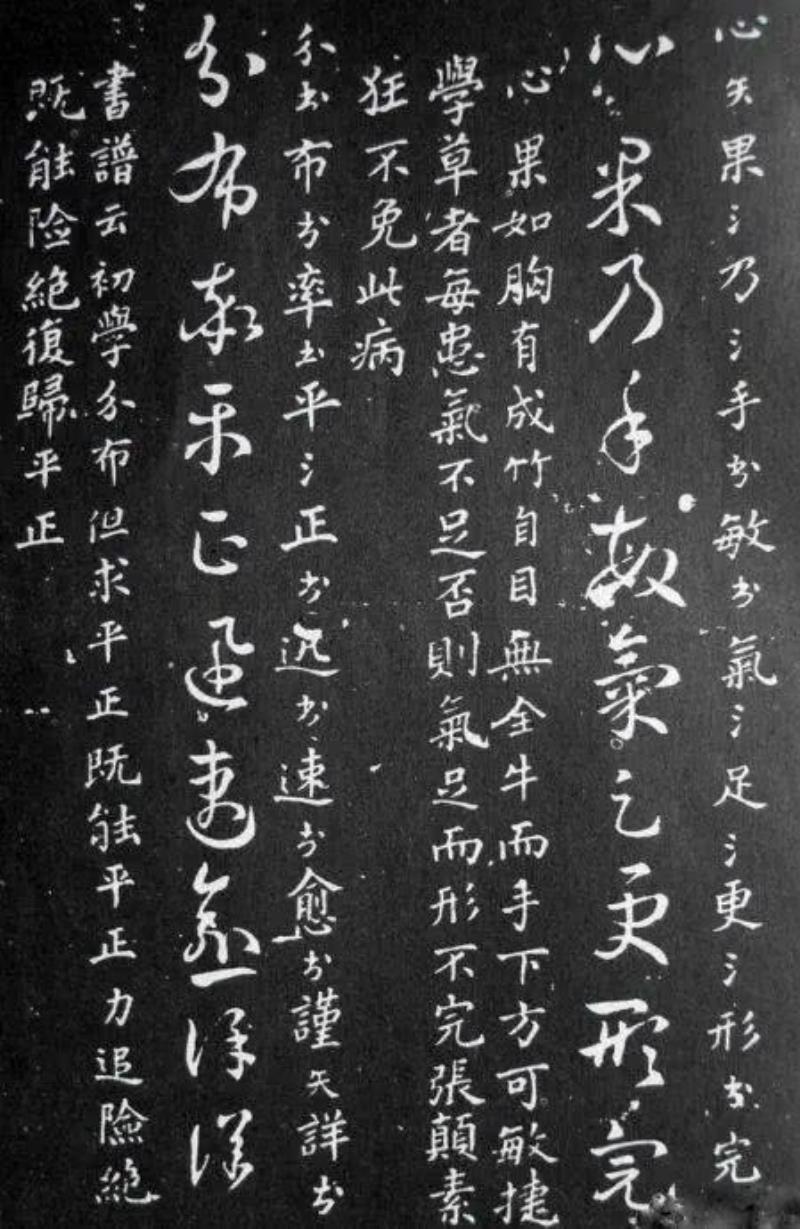 心矢果乃手敏氣足更形完
心果乃手敏氣足更形完
心果如胸有成竹自目無全牛而手下方可敏捷
學草者每患氣不足否則氣足而形不完張顛素
狂不免此病
分布率平正迅速愈謹矢詳
分布率平正迅速愈謹詳
書譜云初學分布但求平正既能平正力追險絶
既能险絶復歸平正